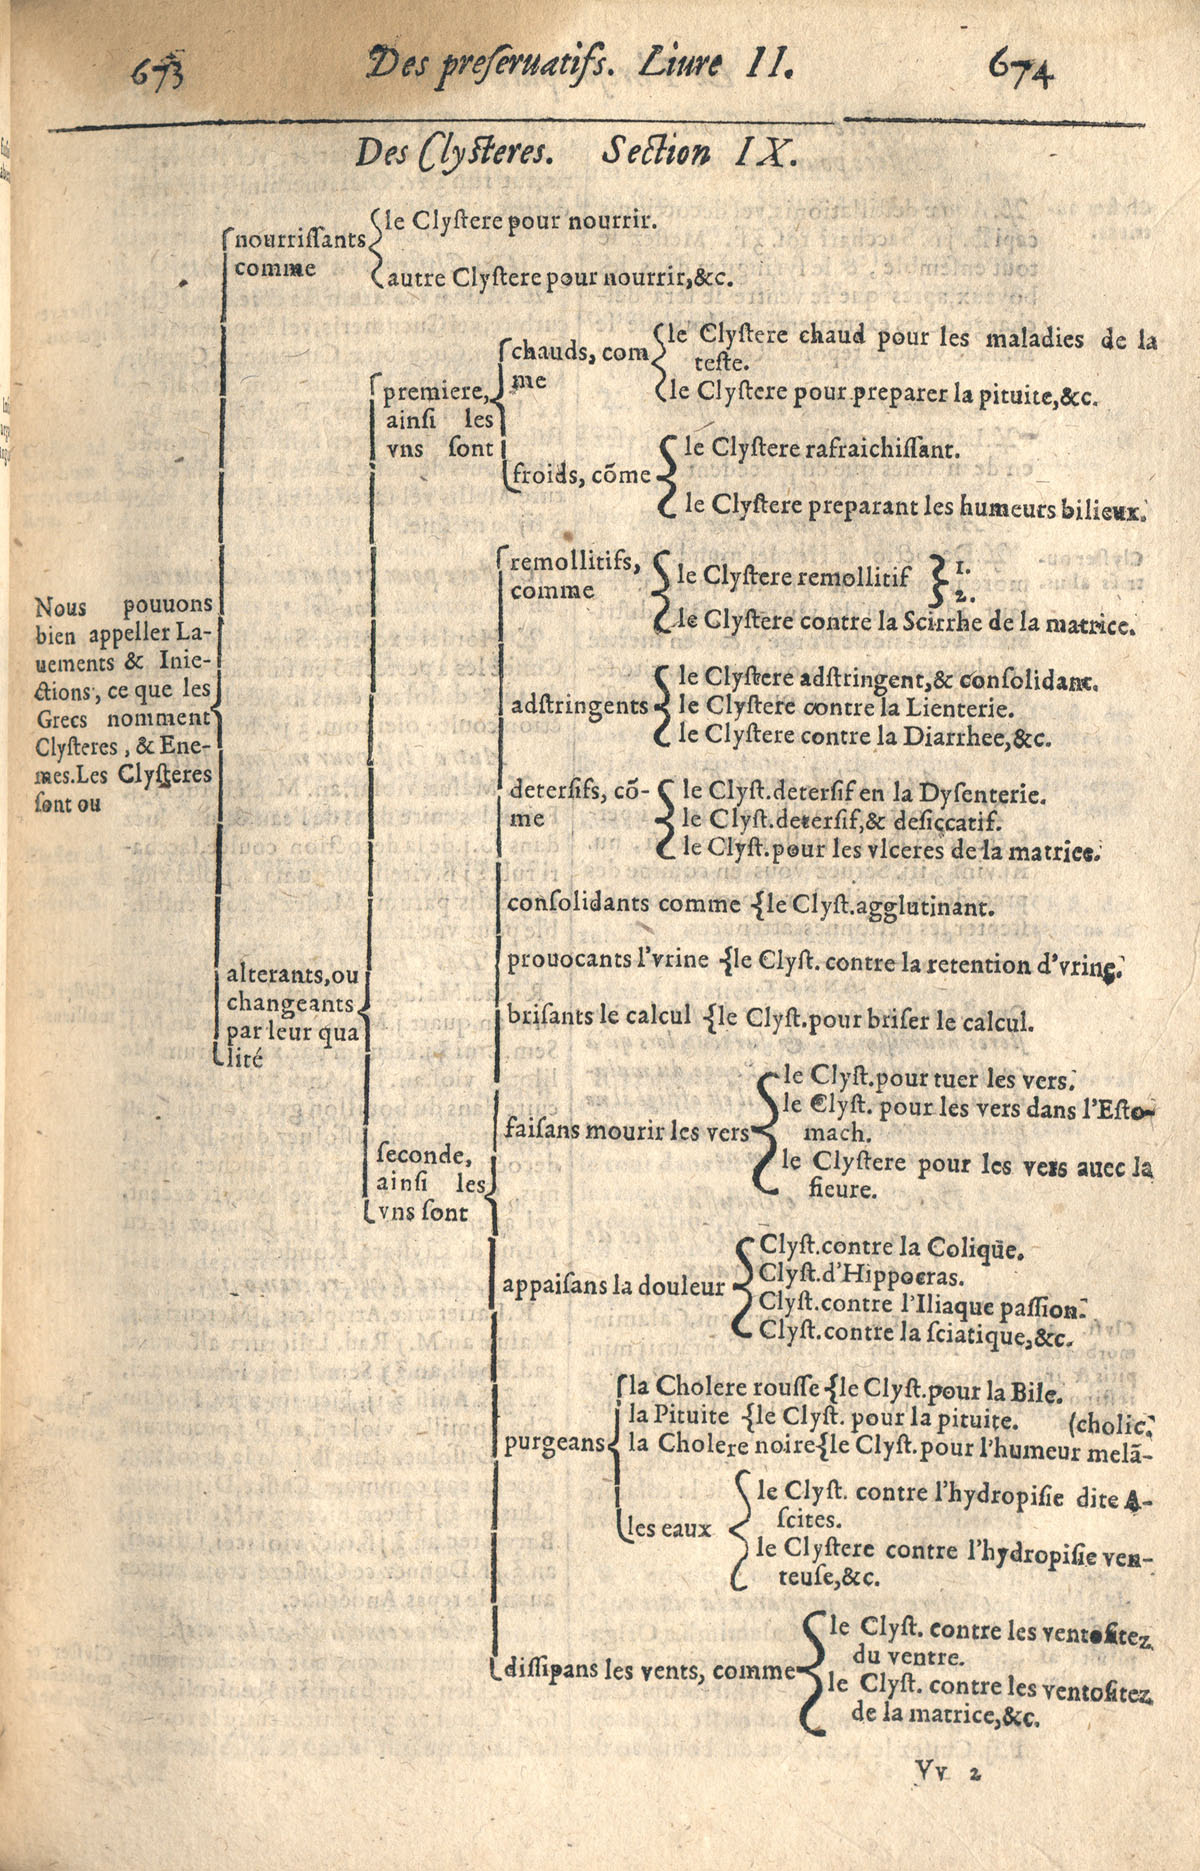 673 Des preseruatifs. Liure II. 674
Des Clysteres. Section IX.
Nous pouuons
bien appeller La-
uements & Inie-
ctions, ce que les
Grecs nomment
Clysteres, & Ene-
mes. Les Clysteres
sont ou
nourrissants
comme
le Clystere pour nourrir.
autre Clystere pour nourrir, &c.
alterants, ou
changeants
par leur qua
lité
premiere,
ainsi les
vns sont
chauds, com
me
le Clystere chaud pour les maladies de la
teste.
le Clystere pour preparer la pituite, &c.
froids, cõme
le Clystere rafraichissant.
le Clystere preparant les humeurs bilieux.
seconde,
ainsi les
vns sont
remollitifs,
comme
le Clystere remollitif
1.
2.
le Clystere contre la Scirrhe de la matrice.
adstringents
le Clystere adstringent, & consolidant.
le Clystere contre la Lienterie.
le Clystere contre la Diarrhee, &c.
detersifs, cõ-
me
le Clyst. detersif en la Dysenterie.
le Clyst. detersif, & desiccatif.
le Clyst. pour les vlceres de la matrice.
consolidants comme {le Clyst. agglutinant.
prouocants l'vrine {le Clyst. contre la retention d'vrine.
brisants le calcul {le Clyst. pour briser le calcul.
faisans mourir les vers
le Clyst. pour tuer les vers.
le Clyst. pour les vers dans l'Esto-
mach.
le Clystere pour les vers auec la
fieure.
appaisans la douleur
Clyst. contre la Colique.
Clyst. d'Hippocras.
Clyst. contre l'Iliaque passion.
Clyst. contre la sciatique, &c.
purgeans
la Cholere rousse {le Clyst. pour la Bile.
la Pituite {le Clyst. pour la pituite. (cholic.
la Cholere noire {le Clyst. pour l'humeur melã-
les eaux
le Clyst. contre l'hydropisie dite A-
scites.
le Clystere contre l'hydropisie ven-
teuse, &c.
dissipans les vents, comme
le Clyst. contre les ventositez
du ventre.
le Clyst. contre les ventositez
de la matrice, &c.
Vv 2